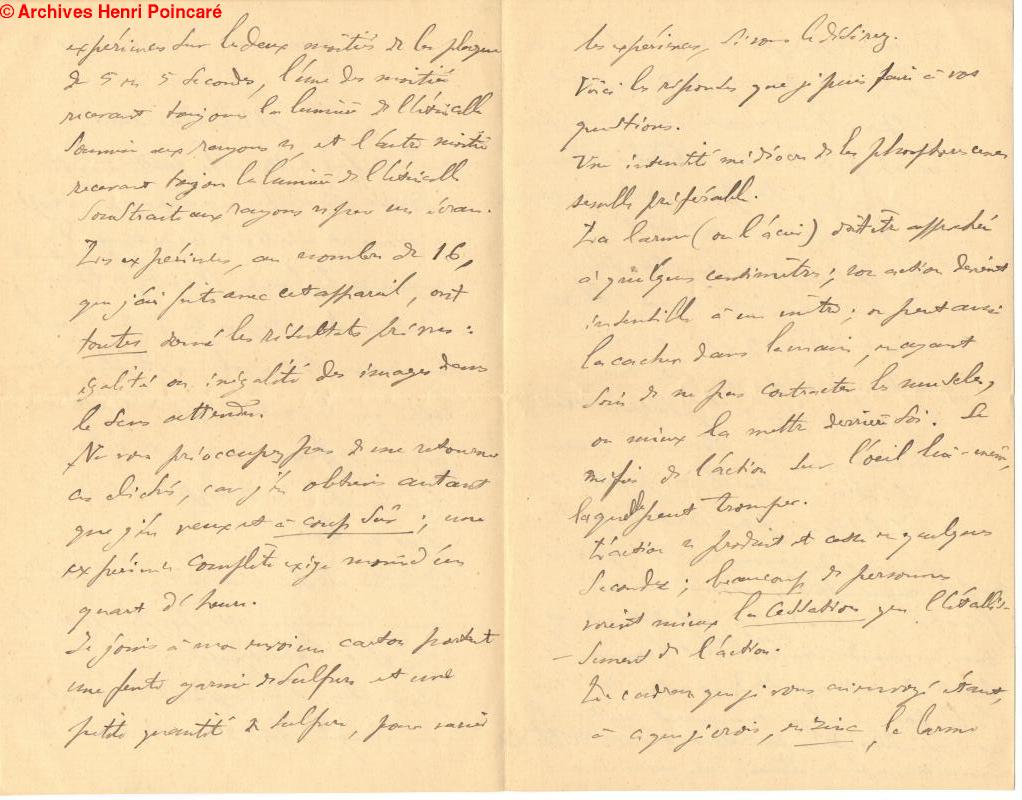 © Archives Henri Poincaré
expériences sur les deux moitiés de la plaque
de 5 en 5 secondes, l'une des moitiés
recevant toujours la lumière de l'étincelle
soumise aux rayons n, et l'autre moitié
recevant toujours la lumière de l'étincelle
soustrait aux rayons n par un écran.
Les expériences, au nombre de 16,
que j'ai faites avec cet appareil, ont
toutes donné les résultats prévus :
égalité ou inégalité des images dans
le sens attendu.
Ne vous préoccupez pas de me retourner
ces clichés, car j'en obtiens autant
que j'en veux et à coup sûr ; une
expérience complète exige moins d'un
quart d'heure.
Je joins à mon envoi un carton portant
une fente garnie de sulfure et une
petite quantité de sulfure, pour varier
les expériences, si vous le désirez.
Voici les réponses que je puis faire à vos
questions.
Une intensité médiocre de la phosphorescence
semble préférable.
La larme (ou l'acier) doit être approchée
à quelques centimètres ; son action devient
insensible à un mètre ; on peut aussi
la cacher dans la main, en ayant
soin de ne pas contracter les muscles,
ou mieux la mettre derrière soi. Se
méfier de l'action sur l'oeil lui-même,
laquelle peut tromper.
L'action se produit et cesse en quelques
secondes ; beaucoup de personnes
voient mieux la cessation que l'établis-
sement de l'action.
Le cadran que je vous ai envoyé étant,
à ce que je crois, en zinc, la larme